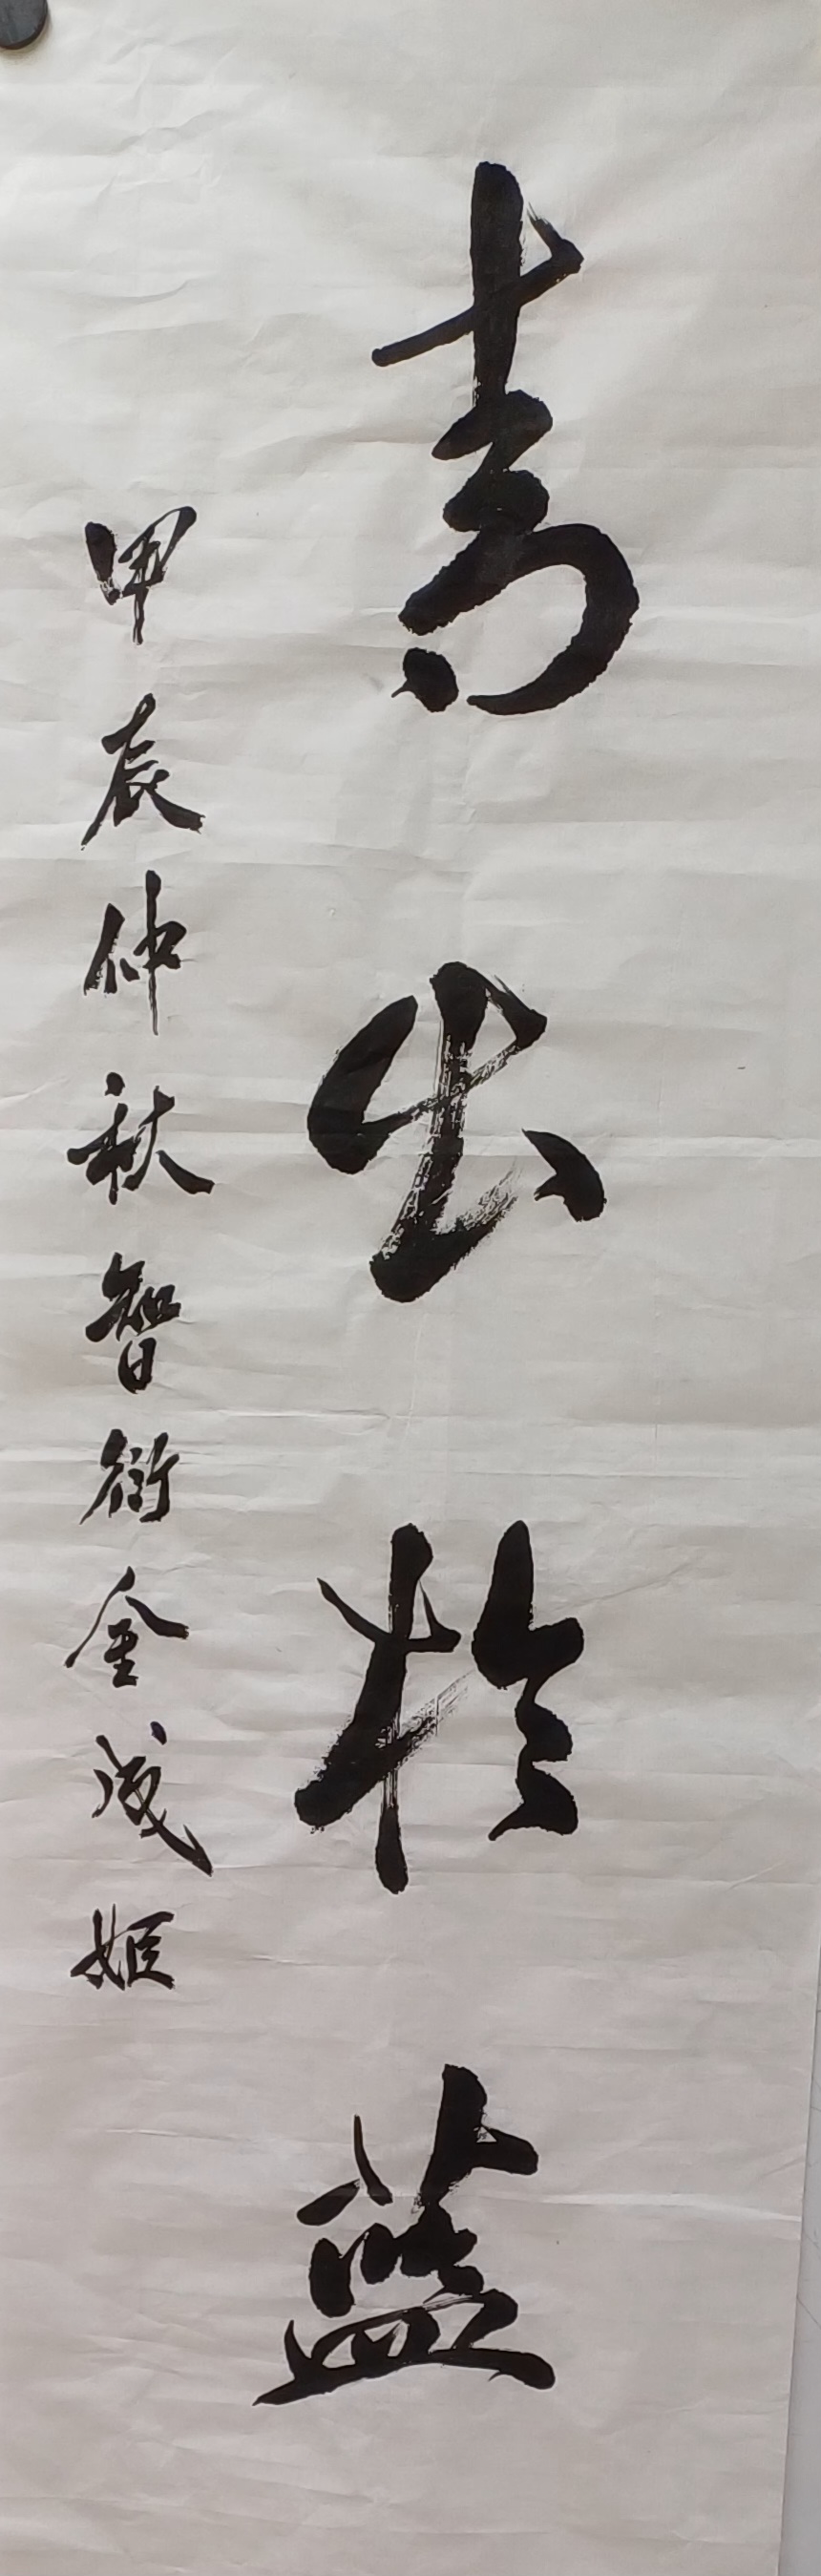 青出於藍
甲辰仲秋智衍金成姬